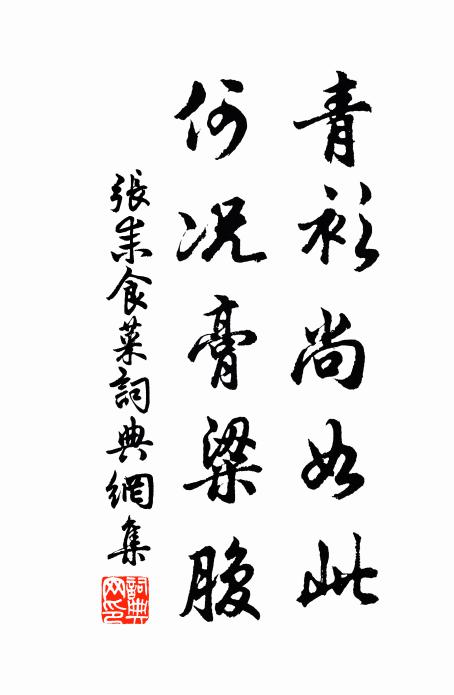 青衫尚如此
何況膏粱腹
張耒食菜詞典網集
詞典网印